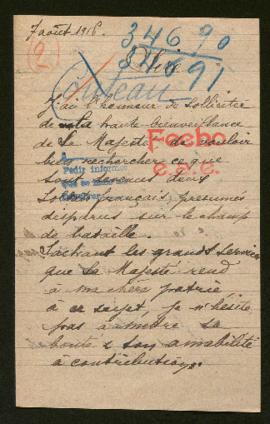 7 août 1916.
(2)
34690
34691
J'ai l'honneur de solliciter
de la haute bienveillance
de Sa Majesté de vouloir
bien rechercher ce que
sont devenus deux
Soldats français, présumés
disparus sur le champ
de bataille.
Sachant les grands services
que Sa Majesté rend
à ma chère patrie
à ce sujet, je n'hésite
pas à mettre sa
bonté & son amabilité
à contribution.